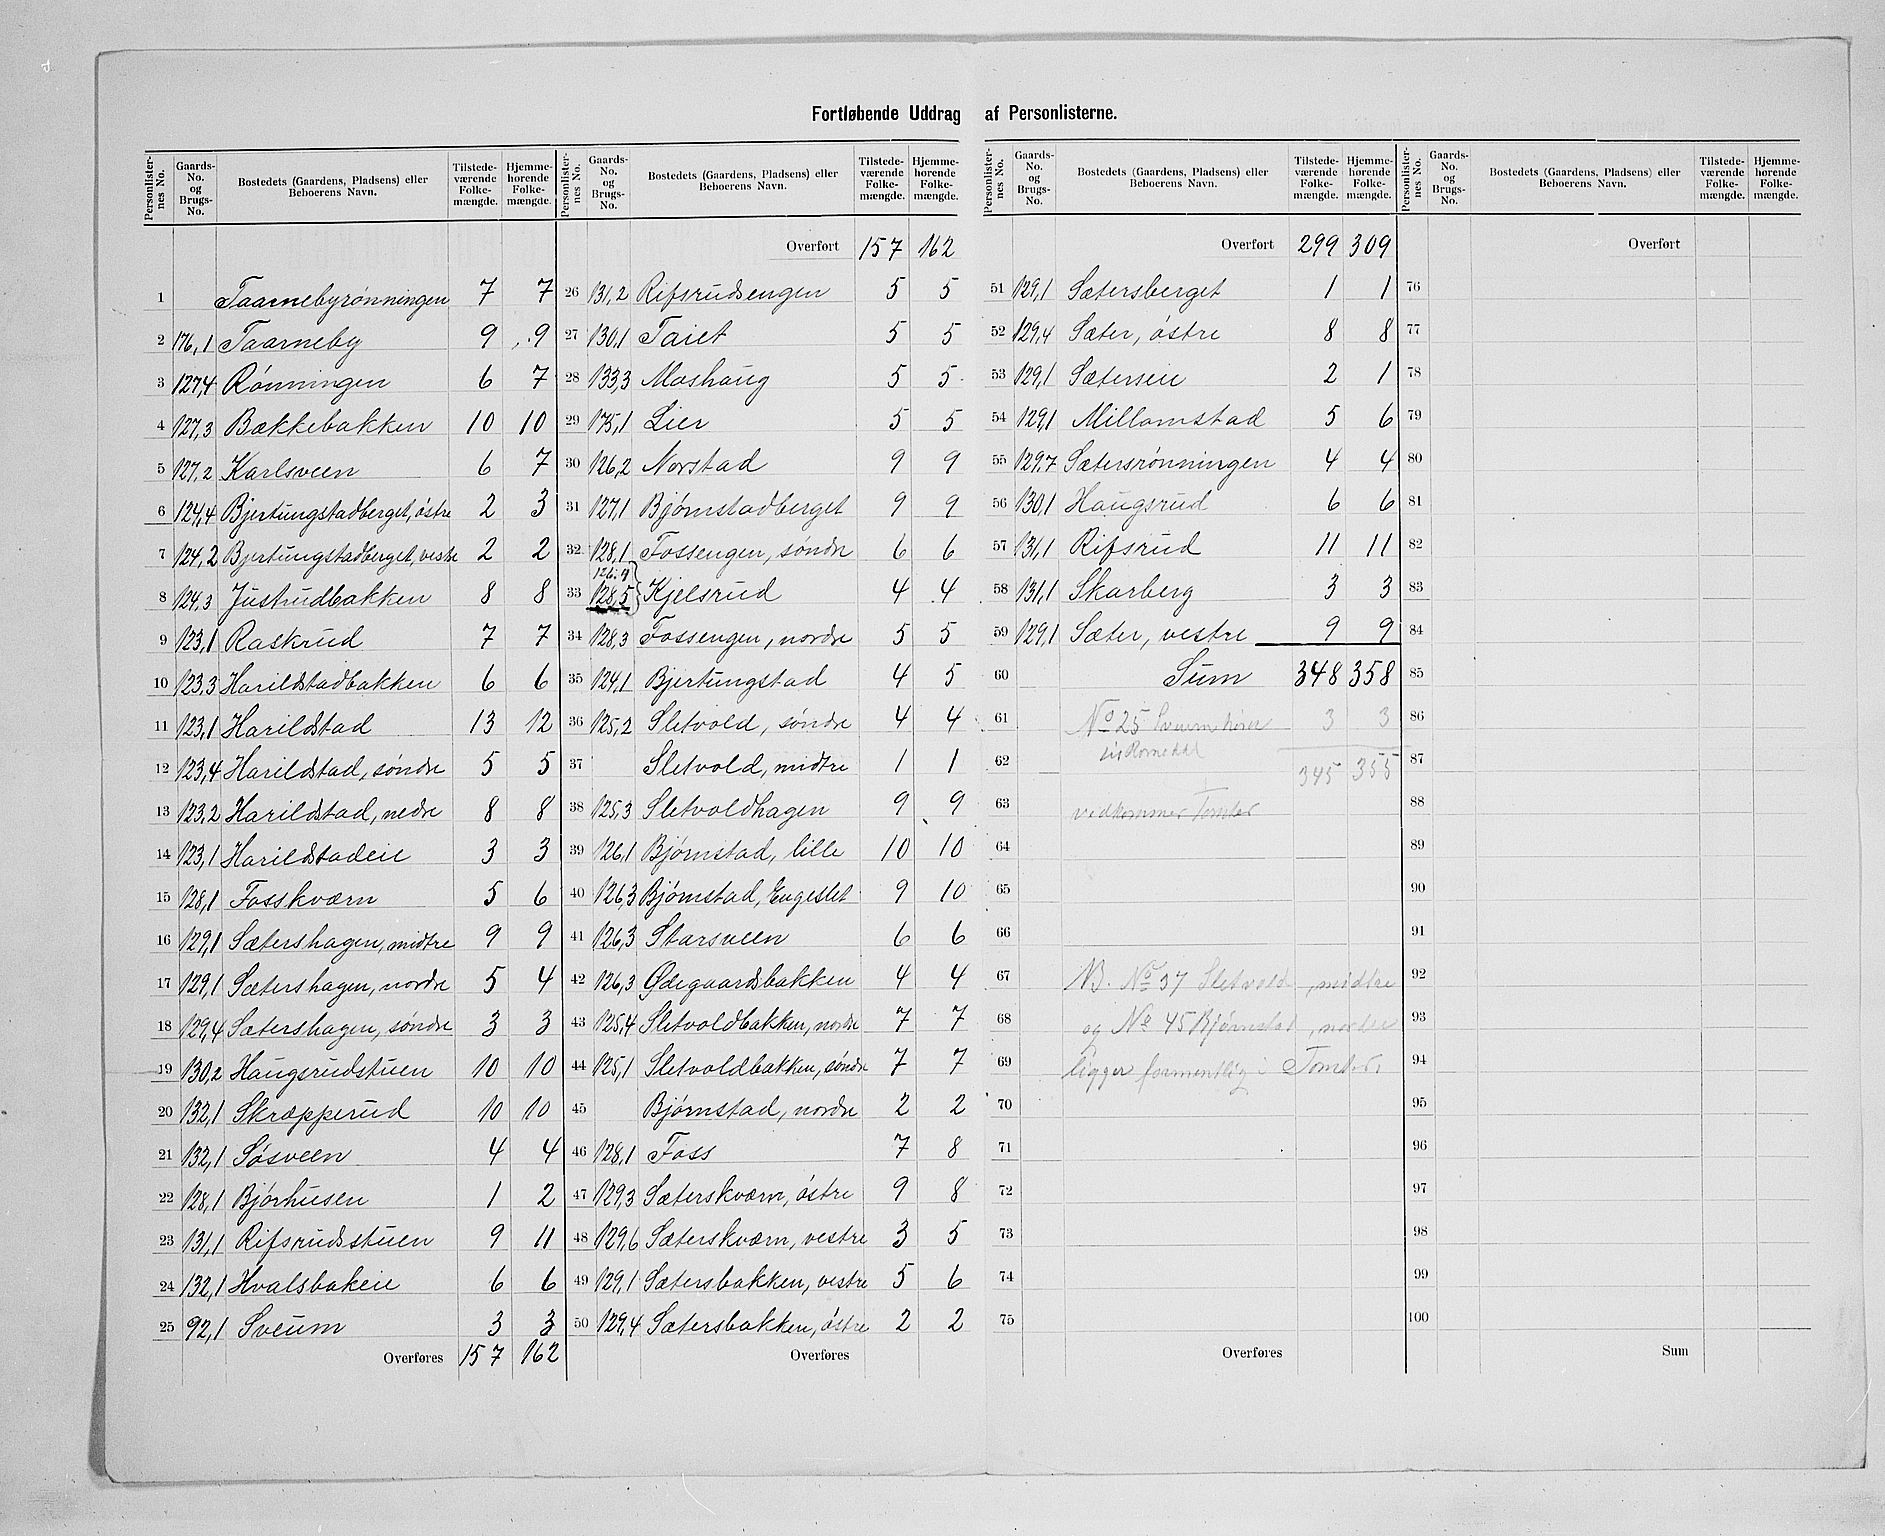 Fortløbende Uddrag af Personlisterne.
Personlister-nes No. Gaards-No. og Brugs-No. Bostedets (Gaardens, Pladsens) eller Beboerens Navn. Tilstede-værende Folke-mængde. Hjemme-hørende Folke-mængde.
1 Taarnebyrønningen 7 7
2 176,1 Taarneby 9 9
3 127,4 Rønningen 6 7
4 127,3 Bækkebakken 10 10
5 127,2 Karlsveen 6 7
6 124,4 Bjertungstadberget, østre 2 3
7 124,2 Bjertungstadberget, vestre 2 2
8 124,3 Justrudbakken 8 8
9 123,1 Raskrud 7 7
10 123,3 Harildstadbakken 6 6
11 123,1 Harildstad 13 12
12 123,4 Harildstad, søndre 5 5
13 123,2 Harildstad, nedre 8 8
14 123,1 Harildstadeie 3 3
15 128,1 Fosskværn 5 6
16 129,1 Sætershagen, midtre 9 9
17 129,1 Sætershagen, nordre 5 4
18 129,4 Sætershagen, søndre 3 3
19 130,2 Haugsrudstuen 10 10
20 132,1 Skræpperud 10 10
21 132,1 Søsveen 4 4
22 128,1 Bjørhusen 1 2
23 131,1 Rifsrudsstuen 9 11
24 132,1 Hvalsbakeie 6 6
25 92,1 Sveum 3 3
Overføres 157 162
Personlister-nes No. Gaards-No. og Brugs-No. Bostedets (Gaardens, Pladsens) eller Beboerens Navn. Tilstede-værende Folke-mængde. Hjemme-hørende Folke-mængde.
Overført 157 162
26 131,2 Rifsrudsengen 5 5
27 130,1 Taiet 5 5
28 133,3 Moshaug 5 5
29 175,1 Lier 5 5
30 126,2 Norstad 9 9
31 127,1 Bjørnstadberget 9 9
32 128,1 Fossengen, søndre 6 6
126,4
33 128,5 Kjelsrud 4 4
34 128,3 Fossengen, nordre 5 5
35 124,1 Bjertungstad 4 5
36 125,2 Sletvold, søndre 4 4
37 Sletvold, midtre 1 1
38 125,3 Sletvoldhagen 9 9
39 126,1 Bjørnstad, lille 10 10
40 126,3 Bjørnstad, Engeslet 9 10
41 126,3 Starsveen 6 6
42 126,3 Ødegaardsbakken 4 4
43 125,4 Sletvoldbakken, nordre 7 7
44 125,1 Sletvoldbakken, søndre 7 7
45 Bjørnstad, nordre 2 2
46 128,1 Foss 7 8
47 129,3 Sæterskværn, østre 9 8
48 129,6 Sæterskværn, vestre 3 5
49 129,1 Sætersbakken, vestre 5 6
50 129,4 Sætersbakken, østre 2 2
Overføres
Personlister-nes No. Gaards-No. og Brugs-No. Bostedets (Gaardens, Pladsens) eller Beboerens Navn. Tilstede-værende Folke-mængde. Hjemme-hørende Folke-mængde.
Overført 299 309
51 129,1 Sætersberget 1 1
52 129,4 Sæter, østre 8 8
53 129,1 Sætereie 2 1
54 129,1 Millomstad 5 6
55 129,7 Sætersrønningen 4 4
56 130,1 Haugsrud 6 6
57 131,1 Rifsrud 11 11
58 131,1 Skarberg 3 3
59 129,1 Sæter, vestre 9 9
60 Sum 348 358
61 No 25 Sveum 3 3
62 Romedal 345 355
63 vedkommer Tomter
64
65
66
67 NB. No 37 Sletvold, midtre
68 og No 45 Bjørnstad, nordre
69 ligger formentlig i Tomter
70
71
72
73
74
75
Overføres
Personlister-nes No. Gaards-No. og Brugs-No. Bostedets (Gaardens, Pladsens) eller Beboerens Navn. Tilstede-værende Folke-mængde. Hjemme-hørende Folke-mængde.
Overført
76
77
78
79
80
81
82
83
84
85
86
87
88
89
90
91
92
93
94
95
96
97
98
99
100
Sum